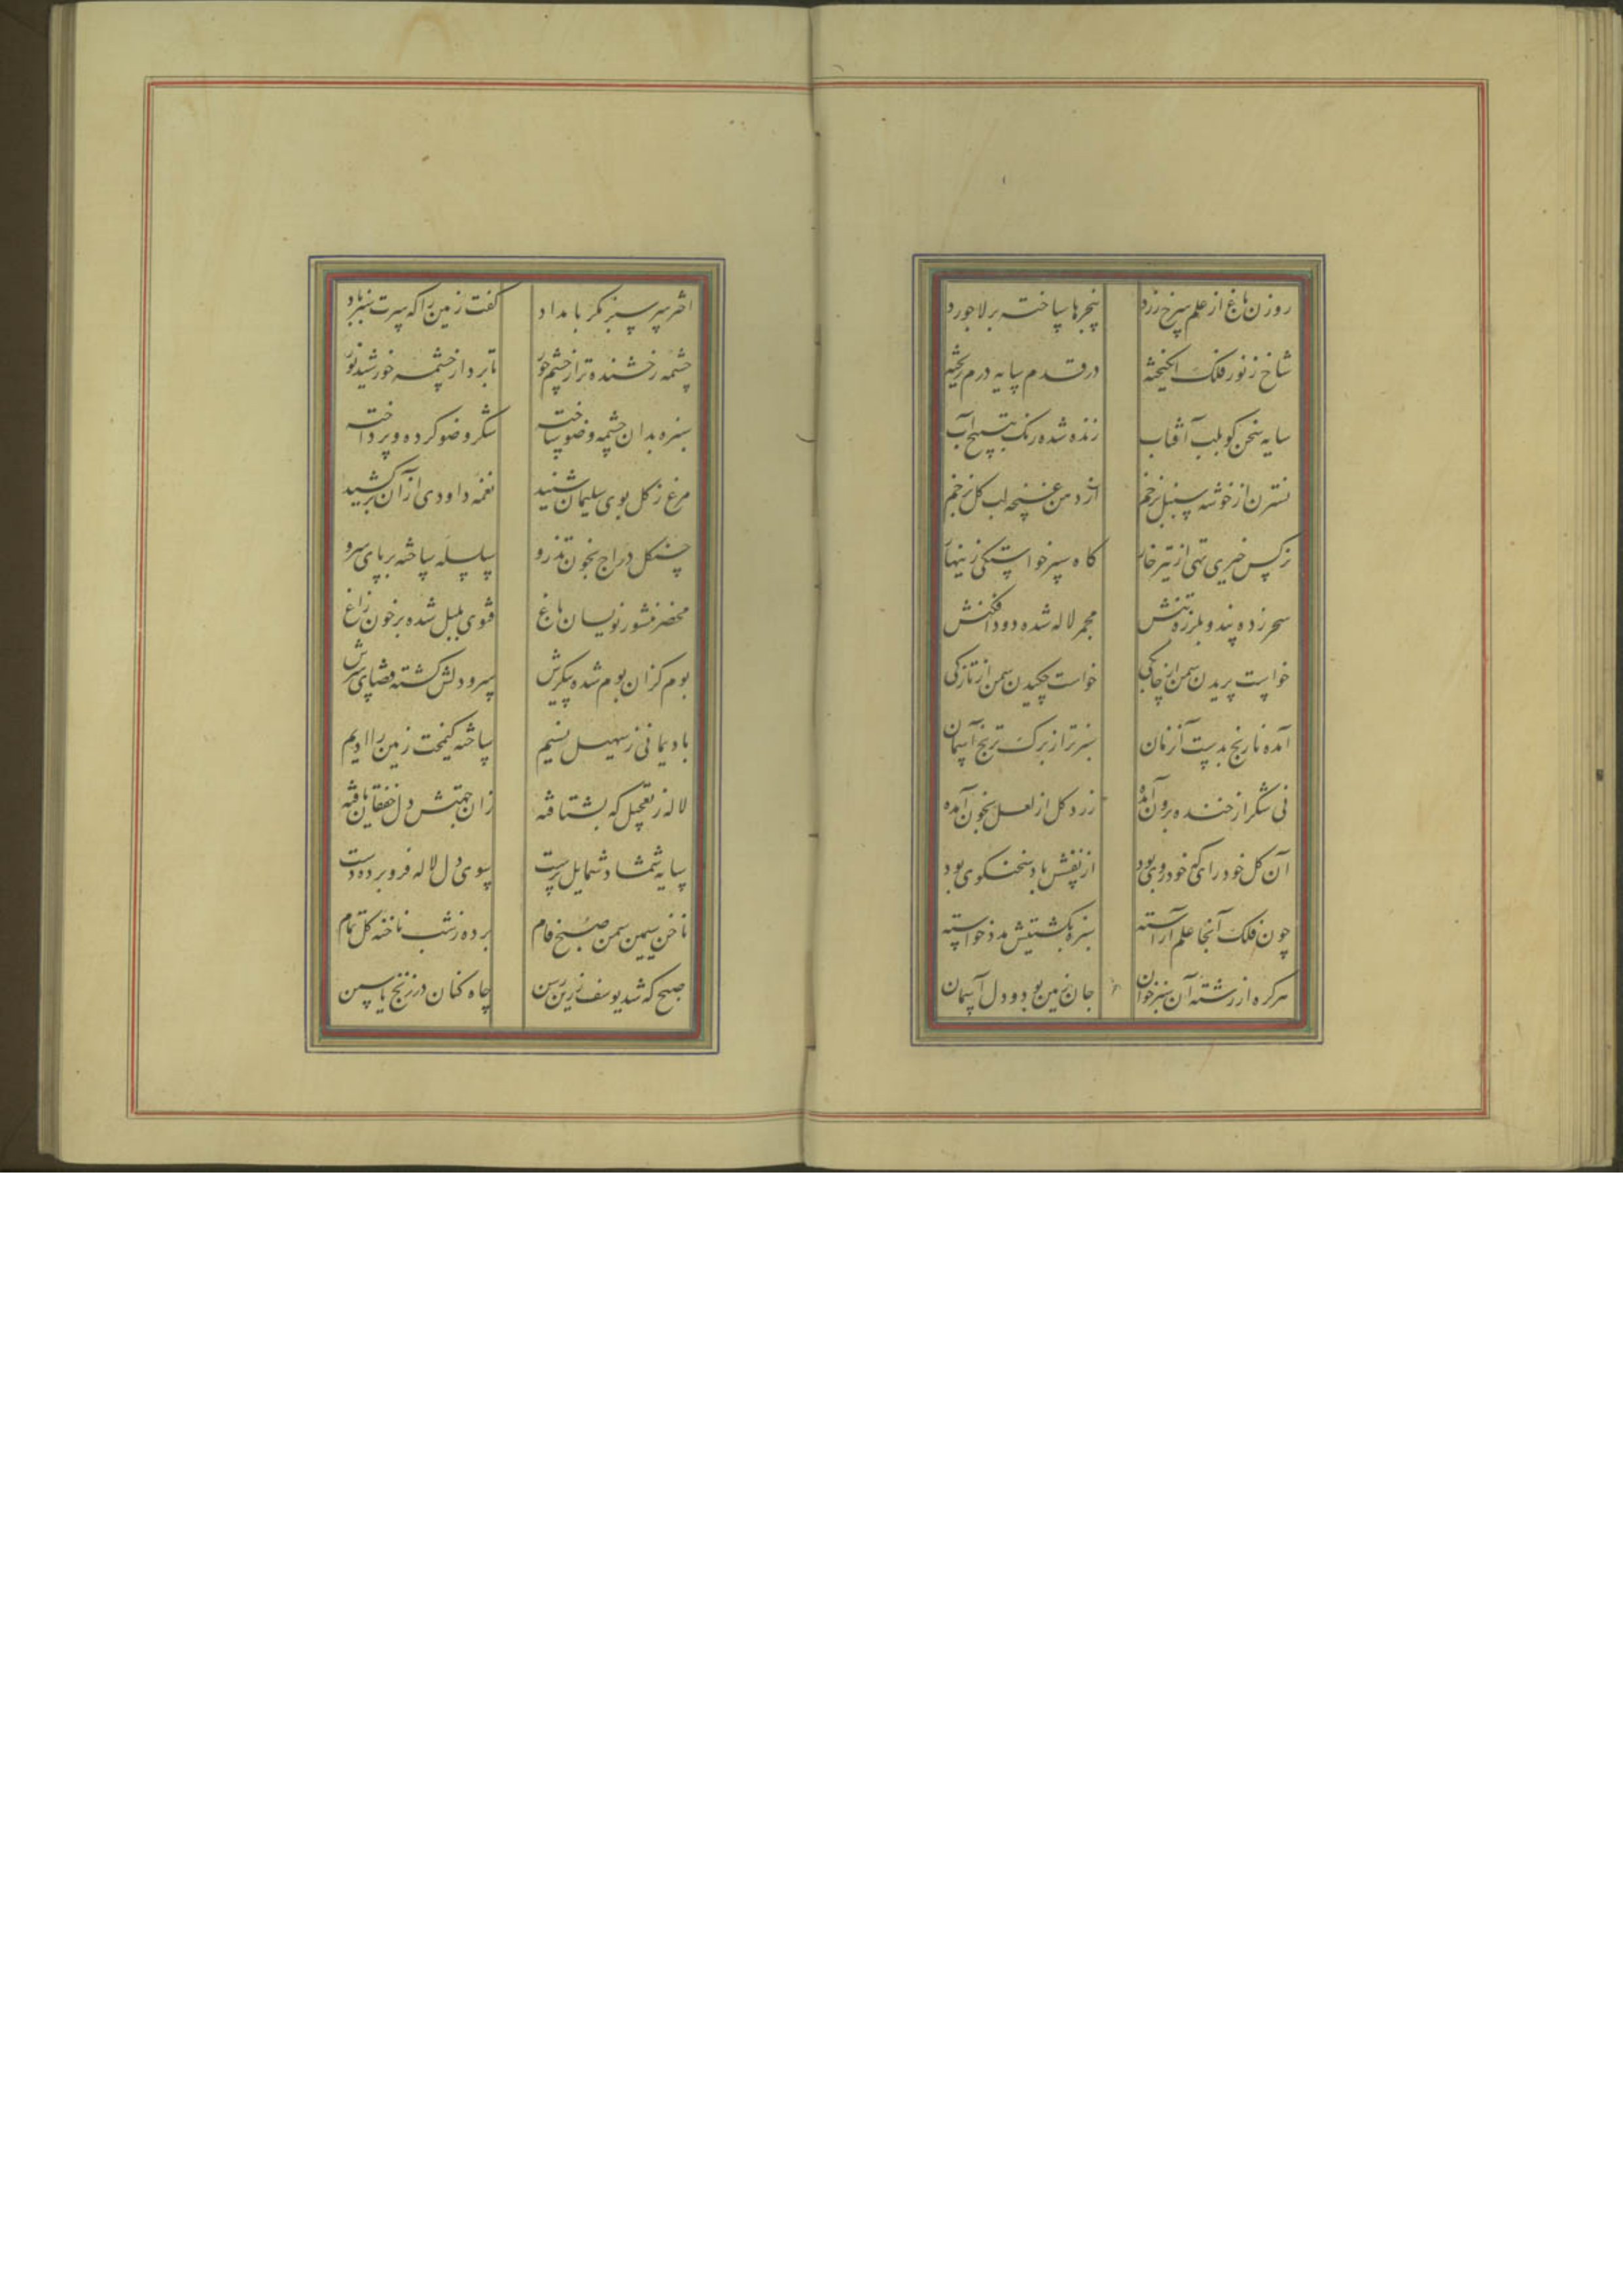 روزن باغ از علم سرخ زرد پنجرها ساخته بر لاجورد
شاخ ز نور فلک انگیخته در قدم سایه درم ریخته
سایه سخن گو بلب آفتاب زنده شده ریگ بتسبیح آب
نسترن از خوشه سنبل بزخم از دمن غنچه لب گل بزخم
نرگس خیری تهی از تیر خار گاه سپر خواست گهی زینهار
سحر زده بید و بلرزه تنش مجمر لاله شده دود افکنش
خواست پریدن سمن از چابکی خواست چکیدن سمن از تازگی
آمده نارنج بدست آن زمان سبزتر از برگ ترنج آسمان
نی شکر از خنده برون آمده زرد گل از لعل بخون آمده
آن گل خود رای که خود روی بود از نفس باد سخنگوی بود
چون فلک آنجا علم آراسته سبزه بکشتیش مدد خواسته
هر گره از رشته آن سبز خوان جان زمین بود و دل آسمان
اختر سرسبز مگر بامداد گفت زمین را که سرت سبز باد
چشمه رخشنده‌تر از چشم حور تا برد از چشمه خورشید نور
سبزه بدان چشمه وضو ساخته شکر وضو کرده و پرداخته
مرغ ز گل بوی سلیمان شنید نغمه داودی از آن برکشید
چنگل دراج بخون تذرو سلسله ساخته بر پای سرو
محضر منشور نویسان باغ فتوی بلبل شده بر خون زاغ
بوم کزان بوم شده پیکرش سرو دلش گشته قضای سرش
باد یمانی ز سهیل نسیم ساخته کیمخت زمین را ادیم
لاله ز تعجیل که بشتافته زان جهتش دل خفقان یافته
سایه شمشاد شمایل پرست سوی دل لاله فرو برده دست
ناخن سیمین سمن صبح فام برده ز شب ناخنه گل تمام
صبح که شد یوسف زرین رسن چاه کنان در زنخ یاسمن